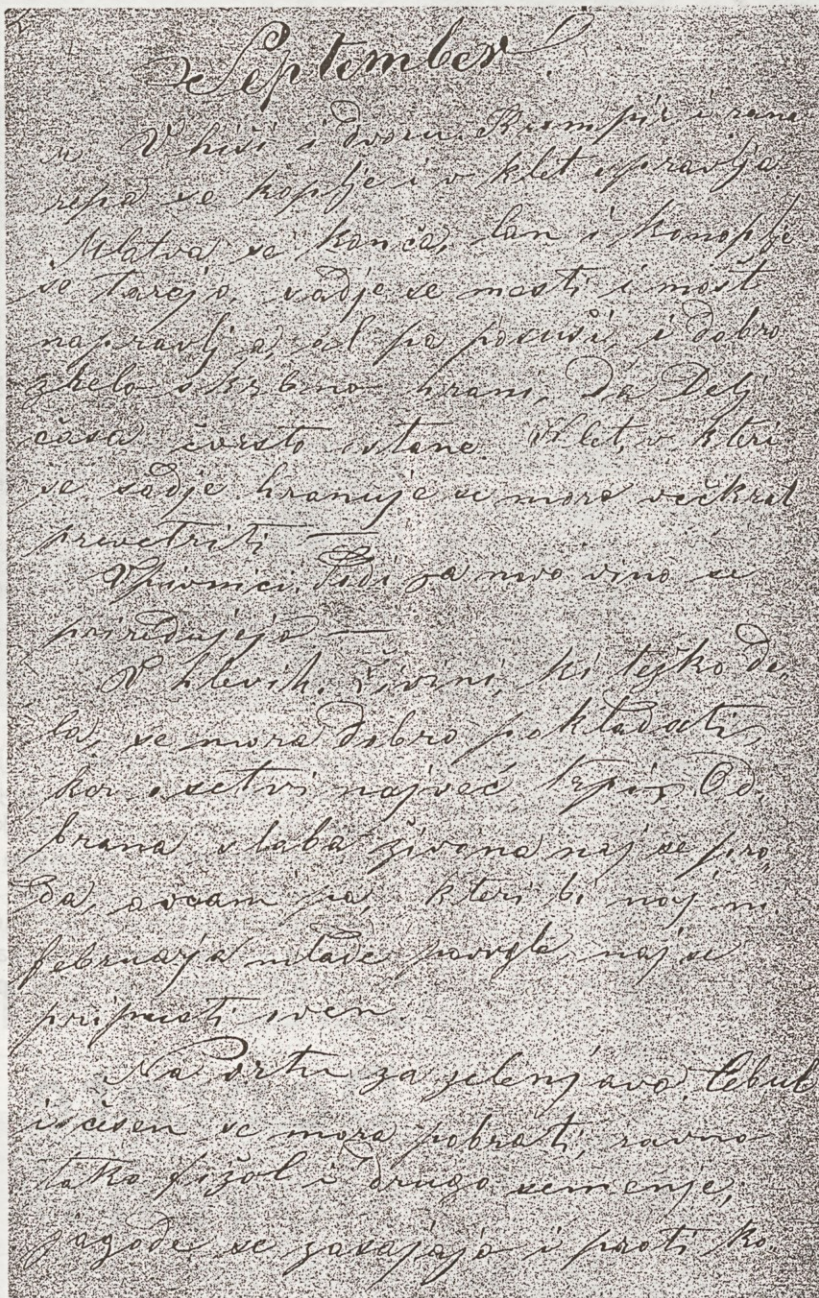 September.
V hiši i dvoru. Krompir i rana
repa se koplje i v klet spravlja
Mlatva se konča, lan i konoplje
se tarejo, sadje se mesti i mošt
napravlja, al pa posuši, i dobro
zrelo skrbno hrani, da delj
časa čvrsto ostane. Klet, v kteri
se sadje hranuje se mora večkrat
prevetriti —
V pivnici. Sodi za novo vino se
priredujejo —
V hlevih. Živini, ki težko de,
la, se mora dobro pokladati,
kor o setvi najveć trpi. Od,
brana slaba živina naj se pro,
da, ovcam pa, kteri bi naj m.
februarja mlade povrgle, naj se
pripusti oven.
Na vrtu za zelenjavo. Čebul
i česen se mora pobrati, ravno
tako fižol i drugo semenje,
jagode se zasajajo i proti ko-